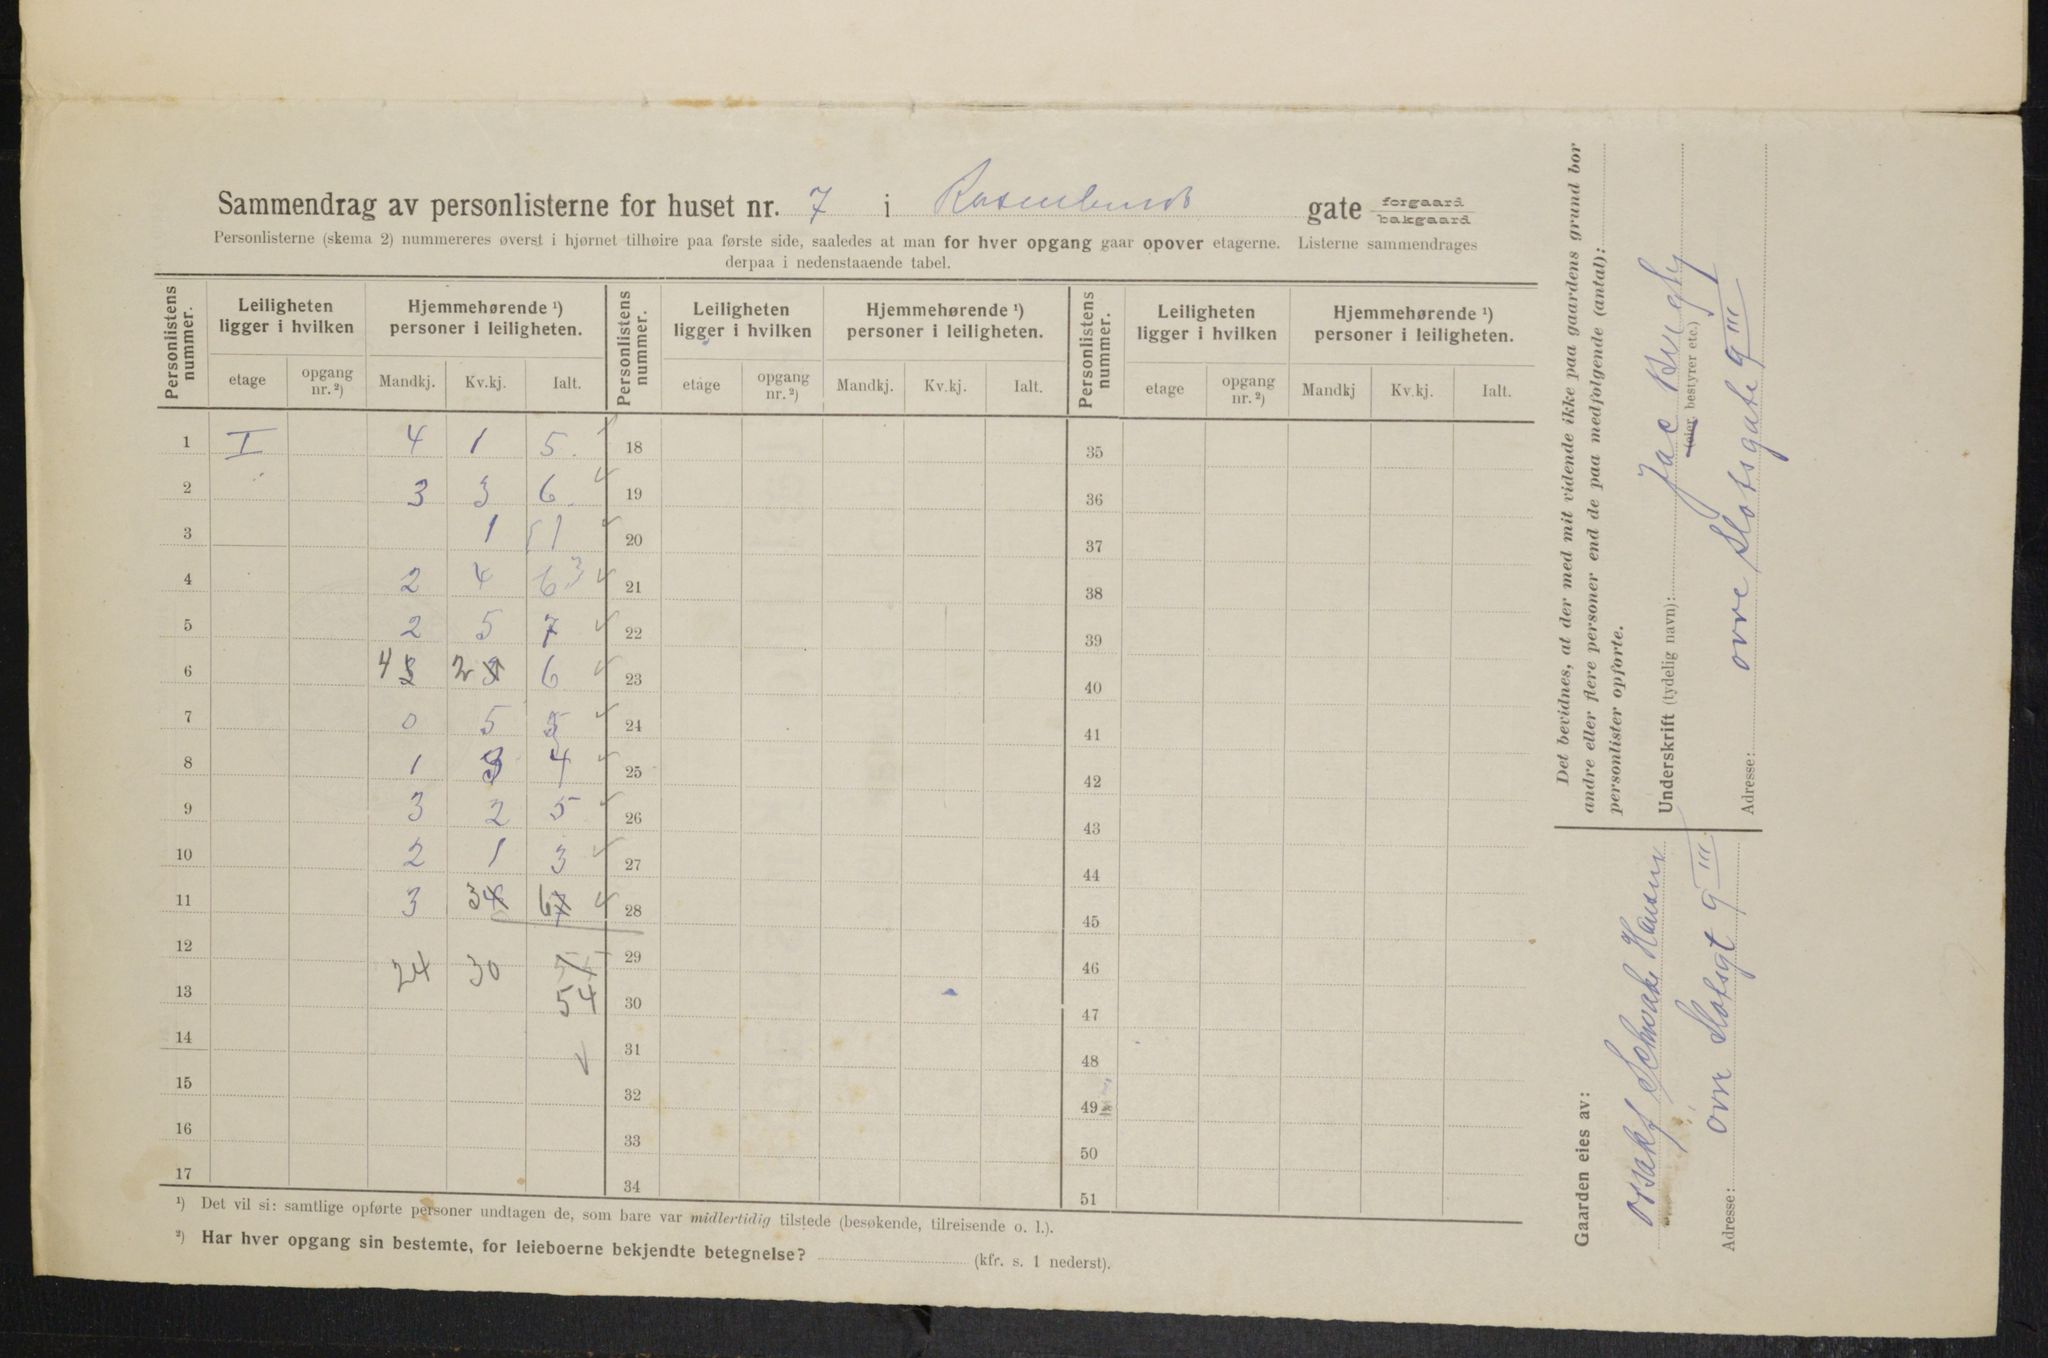 Sammendrag av personlisterne for huset nr. 7 i Rosenlunds gate forgaard bakgaard
Personlisterne (skema 2) nummereres øverst i hjørnet tilhøire paa første side, saaledes at man for hver opgang gaar opover etagerne. Listerne sammendrages
derpaa i nedenstaaende tabel.
Personlistens nummer. Leiligheten ligger i hvilken Hjemmehørende ¹) personer i leiligheten. Personlistens nummer. Leiligheten ligger i hvilken Hjemmehørende ¹) personer i leiligheten. Personlistens nummer. Leiligheten ligger i hvilken Hjemmehørende ¹) personer i leiligheten.
etage opgang nr. ²) Mandkj. Kv.kj. Ialt. etage opgang nr. ²) Mandkj. Kv.kj. Ialt. etage opgang nr. ²) Mandkj Kv.kj. Ialt.
1 I 4 1 5. 18 35
2 3 3 6. 19 36
3 1 1 20 37
4 2 4 6 3 21 38
5 2 5 7 22 39
6 4 3 2 3 6 23 40
7 0 5 5 24 41
8 1 3 4 25 42
9 3 2 5 26 43
10 2 1 3 27 44
11 3 3 4 6 7 28 45
12 24 30 29 46
13 54 30 47
14 31 48
15 32 49
16 33 50
17 34 51
¹) Det vil si: samtlige opførte personer undtagen de, som bare var midlertidig tilstede (besøkende, tilreisende o. l.).
²) Har hver opgang sin bestemte, for leieboerne bekjendte betegnelse? (kfr. s. 1 nederst).
Det bevidnes, at der med mit vidende ikke paa gaardens grund bor
andre eller flere personer end de paa medfølgende (antal):
personlister opførte.
Underskrift (tydelig navn): Jac
(eier, bestyrer etc.)
Adresse: øvre Slotsgate 9 III
Gaarden eies av:
Schwake Hansen
Adresse: øvre Slotsgt 9 III